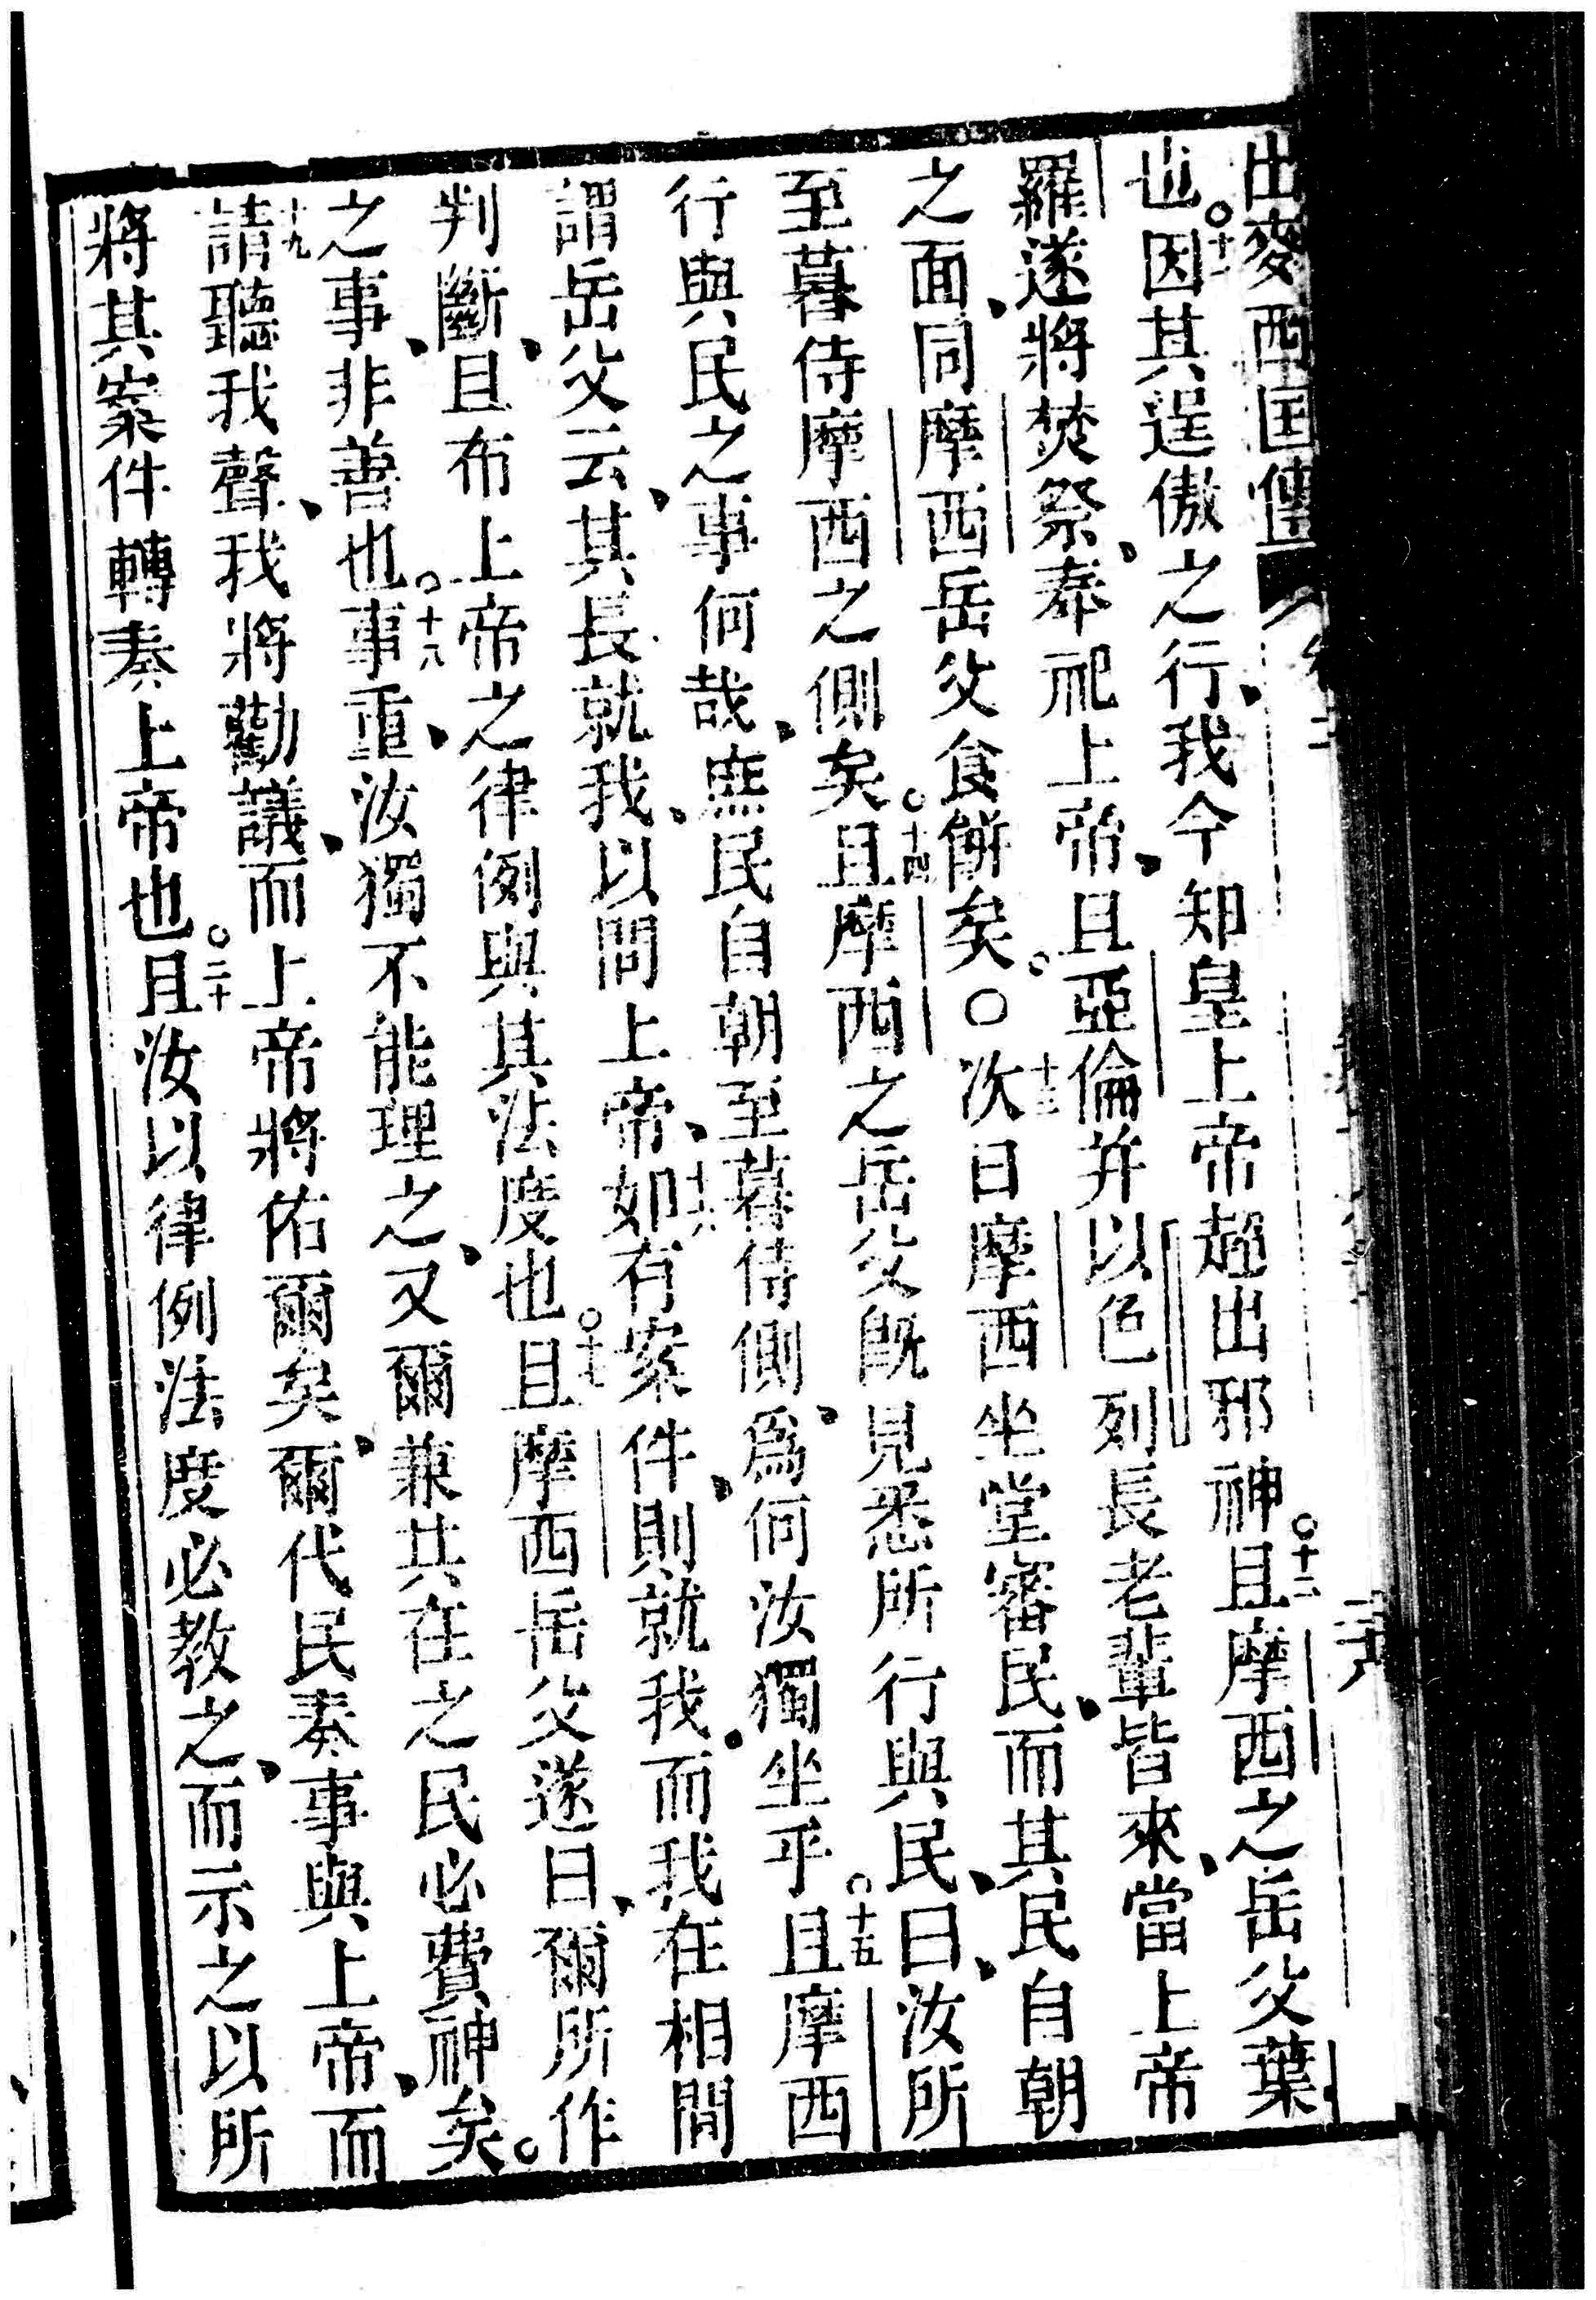 出麥西囯傳
也○十一因其逞傲之行、我今知皇上帝超出邪神○十二且摩西之岳父葉
羅遂將焚祭、奉祀上帝、且亞倫并以色列長老輩皆來、當上帝
之面、同摩西岳父食餅矣。○十三次日摩西坐堂審民、而其民自朝
至暮侍摩西之側矣○十四且摩西之岳父既見悉所行與民、曰、汝所
行與民之事何哉、庶民自朝至暮侍側、爲何汝獨坐乎○十五且摩西
謂岳父云、其長就我、以問上帝、十六如有案件、則就我、而我在相間
判斷、且布上帝之律例與其法度也○十七且摩西岳父遂曰、爾所作
之事、非善也○十八事重、汝獨不能理之、又爾兼共在之民必費神矣。
十九請聽我聲、我將勸議、而上帝將佑爾矣、爾代民奏事與上帝、而
將其案件轉奏上帝也○二十且汝以律例法度必教之、而示之以所